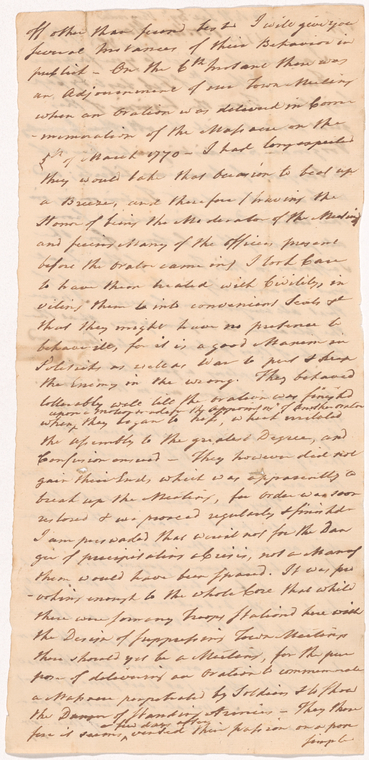 off other than second best. I will give you
several Instances of their Behavior in
publick — On the 6th Instant there was
an Adjournment of our Town Meeting
when an Oration was delivered in Com
-memoration of the Massacre on the
5th of March 1770 — I had long expected
they would take that Occasion to beat up
a Breeze, and therefore (having the
Honor of being the Moderator of the Meeting
and seeing Many of the officers present
before the orator came in) I took Care
to have them treated with Civility, in
viting them to into convenient Seats &c
that they might have no pretence to
behave ill, for it is a good Maxim in
Politicks as well as War to put & keep
the Enemy in the wrong. They behaved
tollerably well till the oration was finishd
upon a motion made for the appointmt of another orator
when they began to hiss, which irritated
the assembly to the greatest Degree, and
Confusion ensued — They however did not
gain their End, which was apparently to
break up the Meeting, for order was soon
restored & we proceed regularly & finishd
I am perswaded that were it not for the Dan
ger of precipitating a Crisis, not a Man of
them would have been spared. It was pro
-voking enough to the whole Core that while
there were so many Troops stationd here with
the Design of suppressing Town Meetings
there should yet be a Meeting, for the pur
pose of delivering an Oration to commemorate
a Massacre perpetrated by Soldiers & to show
the Danger of standing Armies — They there
a few days after
fore it seems, vented their passion on a poor
simple